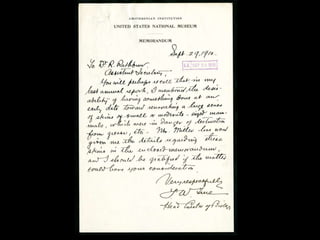 SMITHSONIAN INSTITUTION
UNITED STATES NATIONAL MUSEUM
MEMORANDUM
Sept. 29, 1910.
To Dr. R. Rathbun,
Assistant Secretary,
You will perhaps recall that in my
last annual report, I mentioned the desir-
ability of having something done at an
early date toward renovating a large series
of skins of small & moderate sized mam-
mals, which were in danger of destruction
from grease, etc. Mr. Miller has now
given me the details regarding these
skins in the enclosed memorandum,
and I should be gratified if the matter
could have your consideration.
Very respectfully
F. W. True
Head Curator of Biology